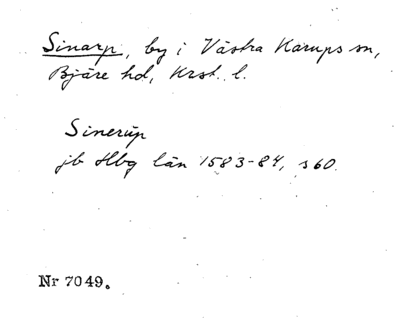 Sinarp, by i Västra Karups sn,
Bjäre hd, Krst. l.
Sinerup
jb Hbg län 1583-84, s 60.
Nr 7049.